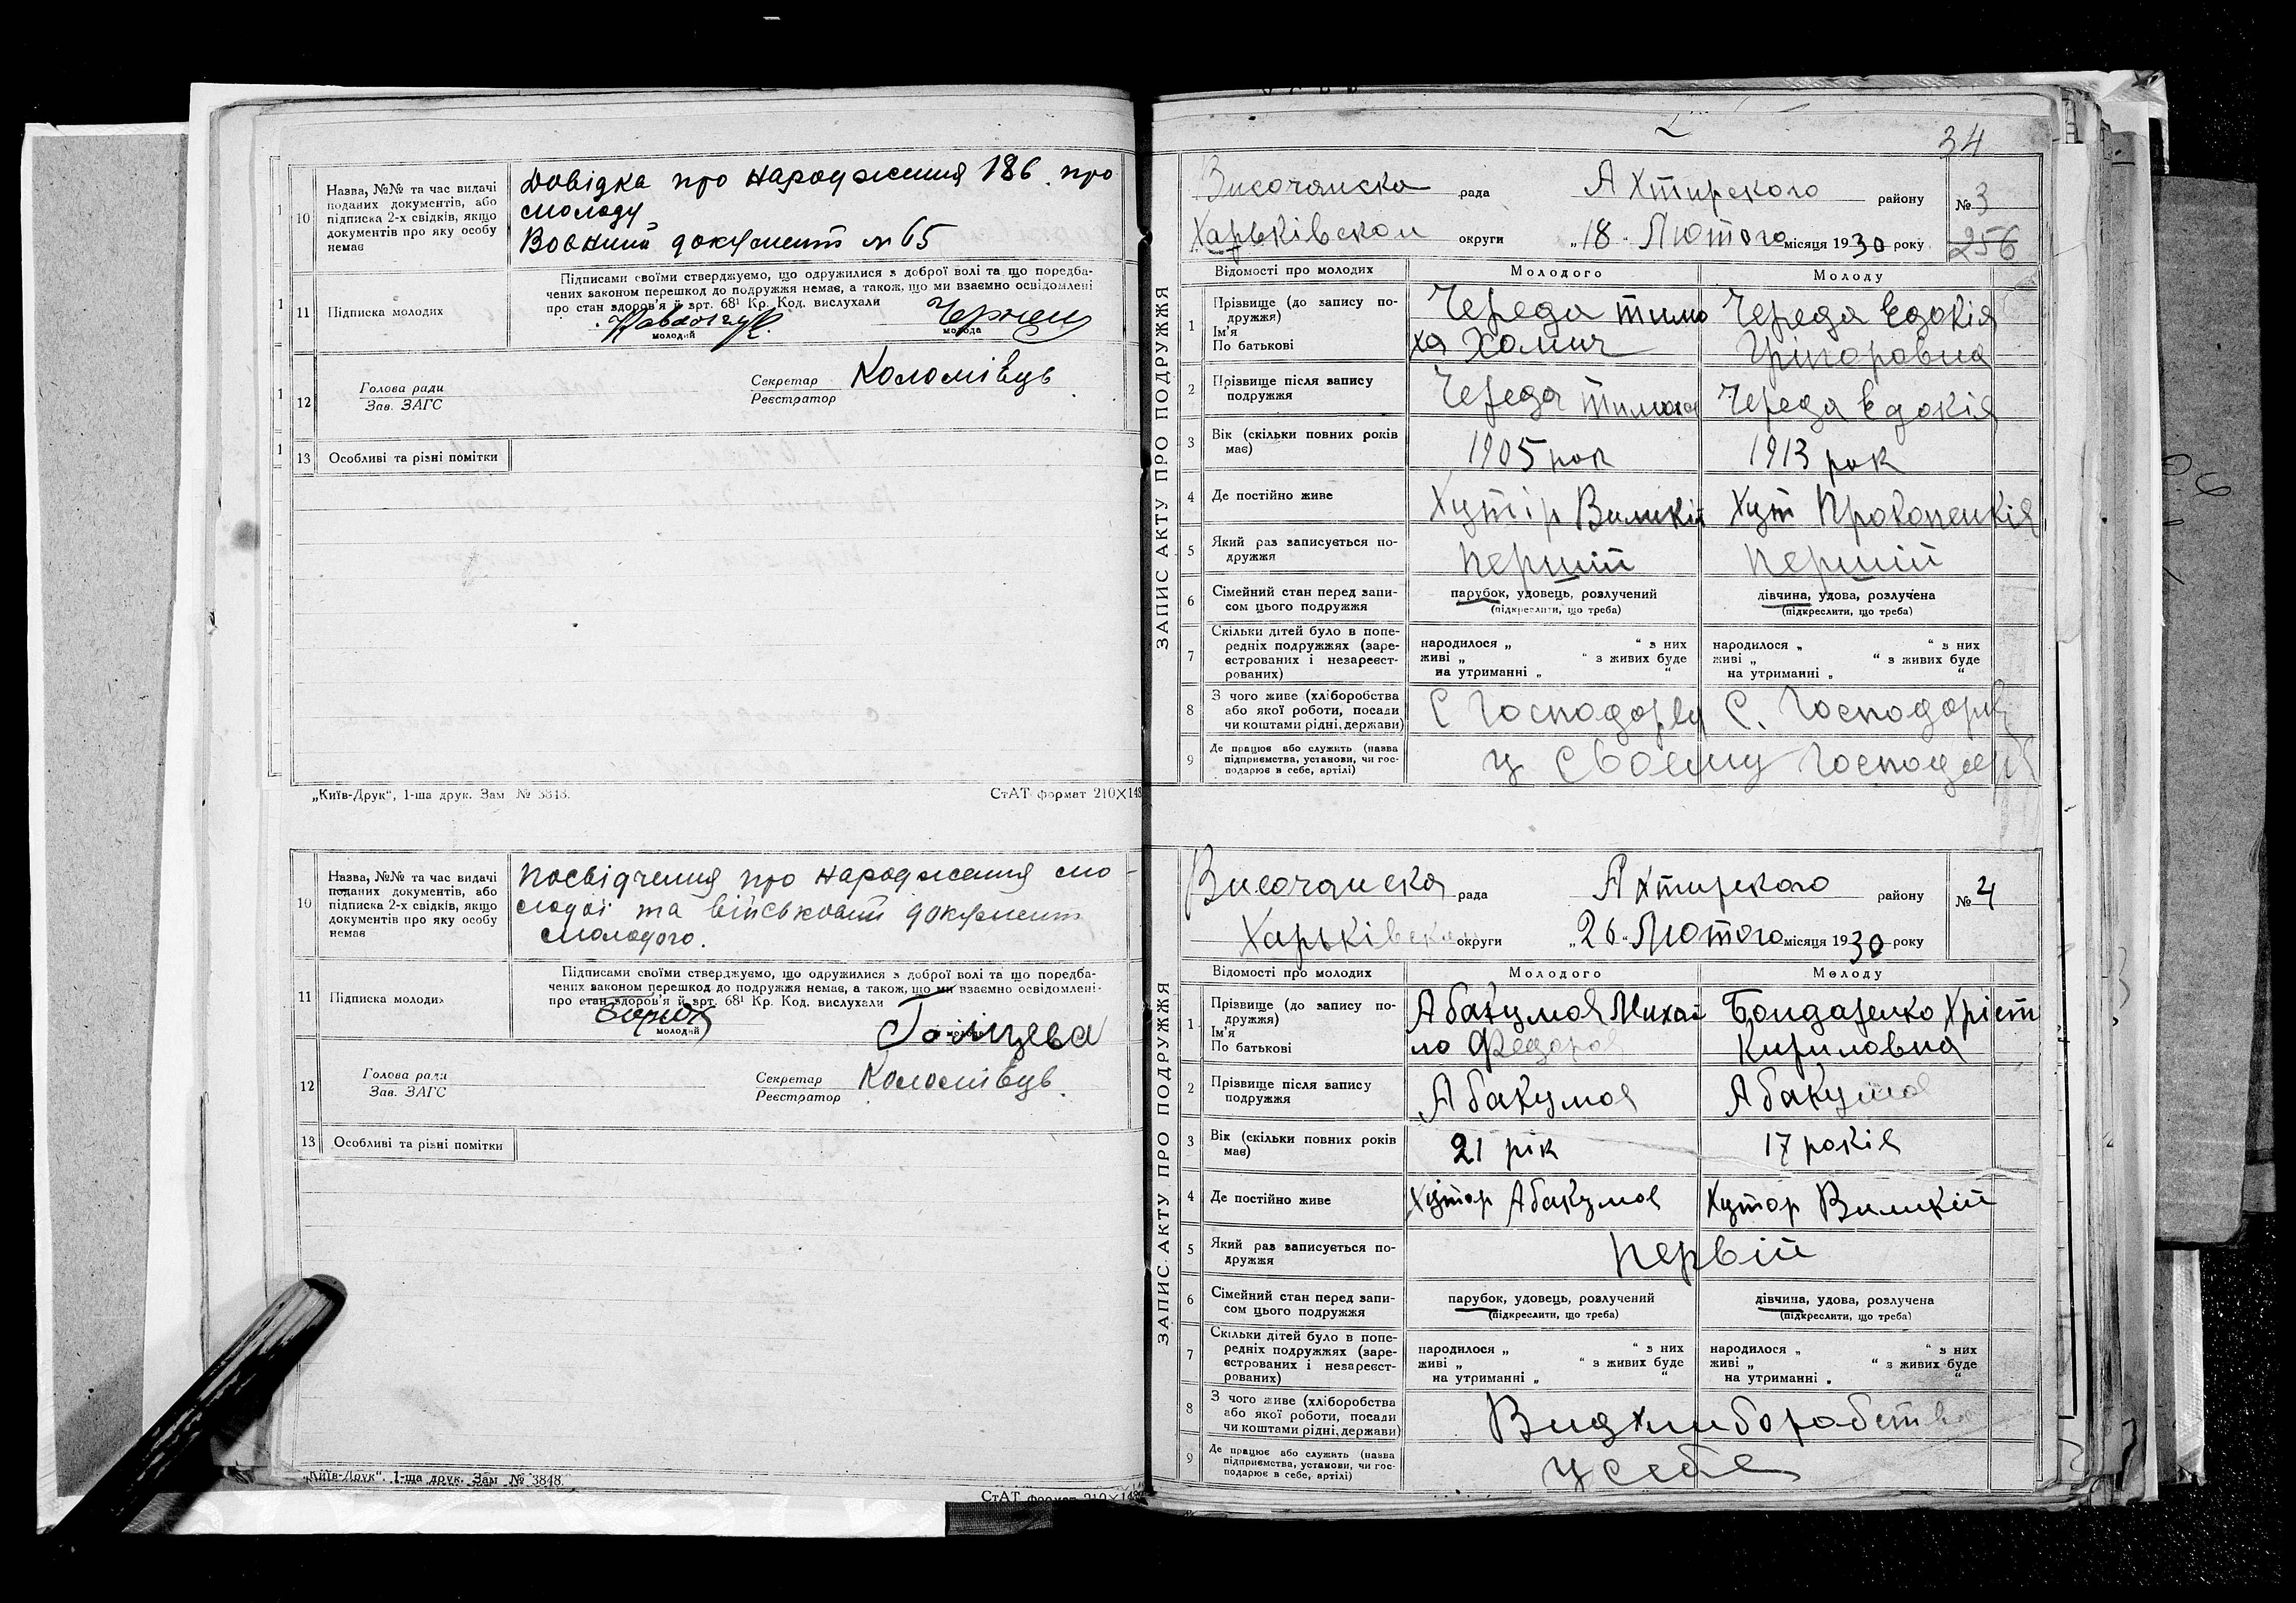 10
Назва, №№ та час видачі
поданих документів, або
підписка 2-х свідків, якщо
документів про яку особу
немає
Довідка про народження 186. про
молоду
Вовний документ № 65
11
Підписка молодих
Підписами своїми стверджуємо, що одружилися з доброї волі та що поредба-
чених законом перешкод до подружжя немає, а також, що ми взаємно освідомлені
про стан здоров'я й арт. 68¹ Кр. Код. вислухали
молодий
молода
12
Голова ради
Зав. ЗАГС
Секретар
Реєстратор
Коломівць
13
Особливі та різні помітки
„Київ-Друк“, 1-ша друк. Зам № 3848.
СтАТ формат 210×148
10
Назва, №№ та час видачі
поданих документів, або
підписка 2-х свідків, якщо
документів про яку особу
немає
Посвідчення про народження мо-
лодої та військовий документ
молодого.
11
Підписка молодих
Підписами своїми стверджуємо, що одружилися з доброї волі та що поредба-
чених законом перешкод до подружжя немає, а також, що ми взаємно освідомлені
про стан здоров'я й арт. 68¹ Кр. Код. вислухали
молодий
12
Голова ради
Зав. ЗАГС
Секретар
Реєстратор
Коломівць
13
Особливі та різні помітки
„Київ-Друк“. 1-ша друк. Зам № 3848.
СтАТ формат 210×148
34
ЗАПИС АКТУ ПРО ПОДРУЖЖЯ
Височанска рада Ахтирского району № 3
Харьківскои округи „18“ Лютого місяця 1930 року 256
Відомості про молодих Молодого Молоду
1
Прізвище (до запису по-
дружжя)
Ім'я
По батькові
Череда Тимо
ха Хомич
Череда Євдокія
Грігоровна
2
Прізвище після запису
подружжя
Череда Тимоха
Череда Євдокія
3
Вік (скільки повних років
має)
1905 рок
1913 рок
4
Де постійно живе
Хутір Виликій
Хут Прокопенкія
5
Який раз записується по-
дружжя
Першій
Першій
6
Сімейний стан перед запи-
сом цього подружжя
парубок, удовець, розлучений
(підкреслити, що треба)
дівчина, удова, розлучена
(підкреслити, що треба)
7
Скільки дітей було в попе-
редніх подружжях (заре-
єстрованих і незареєст-
рованих)
народилося „ “ з них
живі „ “ з живих буде
на утриманні „ “
народилося „ “ з них
живі „ “ з живих буде
на утриманні „ “
8
З чого живе (хліборобства
або якої роботи, посади
чи коштами рідні, держави)
С Господорва
С. Господорв
9
Де працює або служить (назва
підприємства, установи, чи гос-
подарює в себе, артілі)
у своєму
ЗАПИС АКТУ ПРО ПОДРУЖЖЯ
Височанска рада Ахтирского району № 4
Харьківскои округи „26“ Лютого місяця 1930 року
Відомості про молодих Молодого Молоду
1
Прізвище (до запису по-
дружжя)
Ім'я
По батькові
Абакумов Михай
ло Федоров
Бондаренко Хріст
Кириловна
2
Прізвище після запису
подружжя
Абакумов
Абакумов
3
Вік (скільки повних років
має)
21 рік
17 років
4
Де постійно живе
Хутор Абакумов
Хутор Виликій
5
Який раз записується по-
дружжя
Первій
6
Сімейний стан перед запи-
сом цього подружжя
парубок, удовець, розлучений
(підкреслити, що треба)
дівчина, удова, розлучена
(підкреслити, що треба)
7
Скільки дітей було в попе-
редніх подружжях (заре-
єстрованих і незареєст-
рованих)
народилося „ “ з них
живі „ “ з живих буде
на утриманні „ “
народилося „ “ з них
живі „ “ з живих буде
на утриманні „ “
8
З чого живе (хліборобства
або якої роботи, посади
чи коштами рідні, держави)
Видхлиборобства
9
Де працює або служить (назва
підприємства, установи, чи гос-
подарює в себе, артілі)
у себе